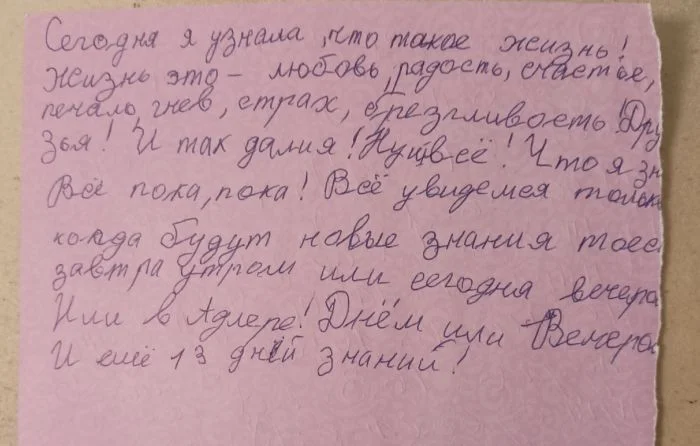 Сегодня я узнала, что такое жизнь!
Жизнь это - любовь, радость, счастье,
печаль, гнев, страх, брезгливость! Дру
зья! И так далия! Ну, всё! Что я зн
Всё пока, пока! Всё увидемся только
когда будут новые знания тоес
завтра утром или сегодня вечера
Или в Адлере! Днём или Вечеро
И ещё 13 дней знаний!